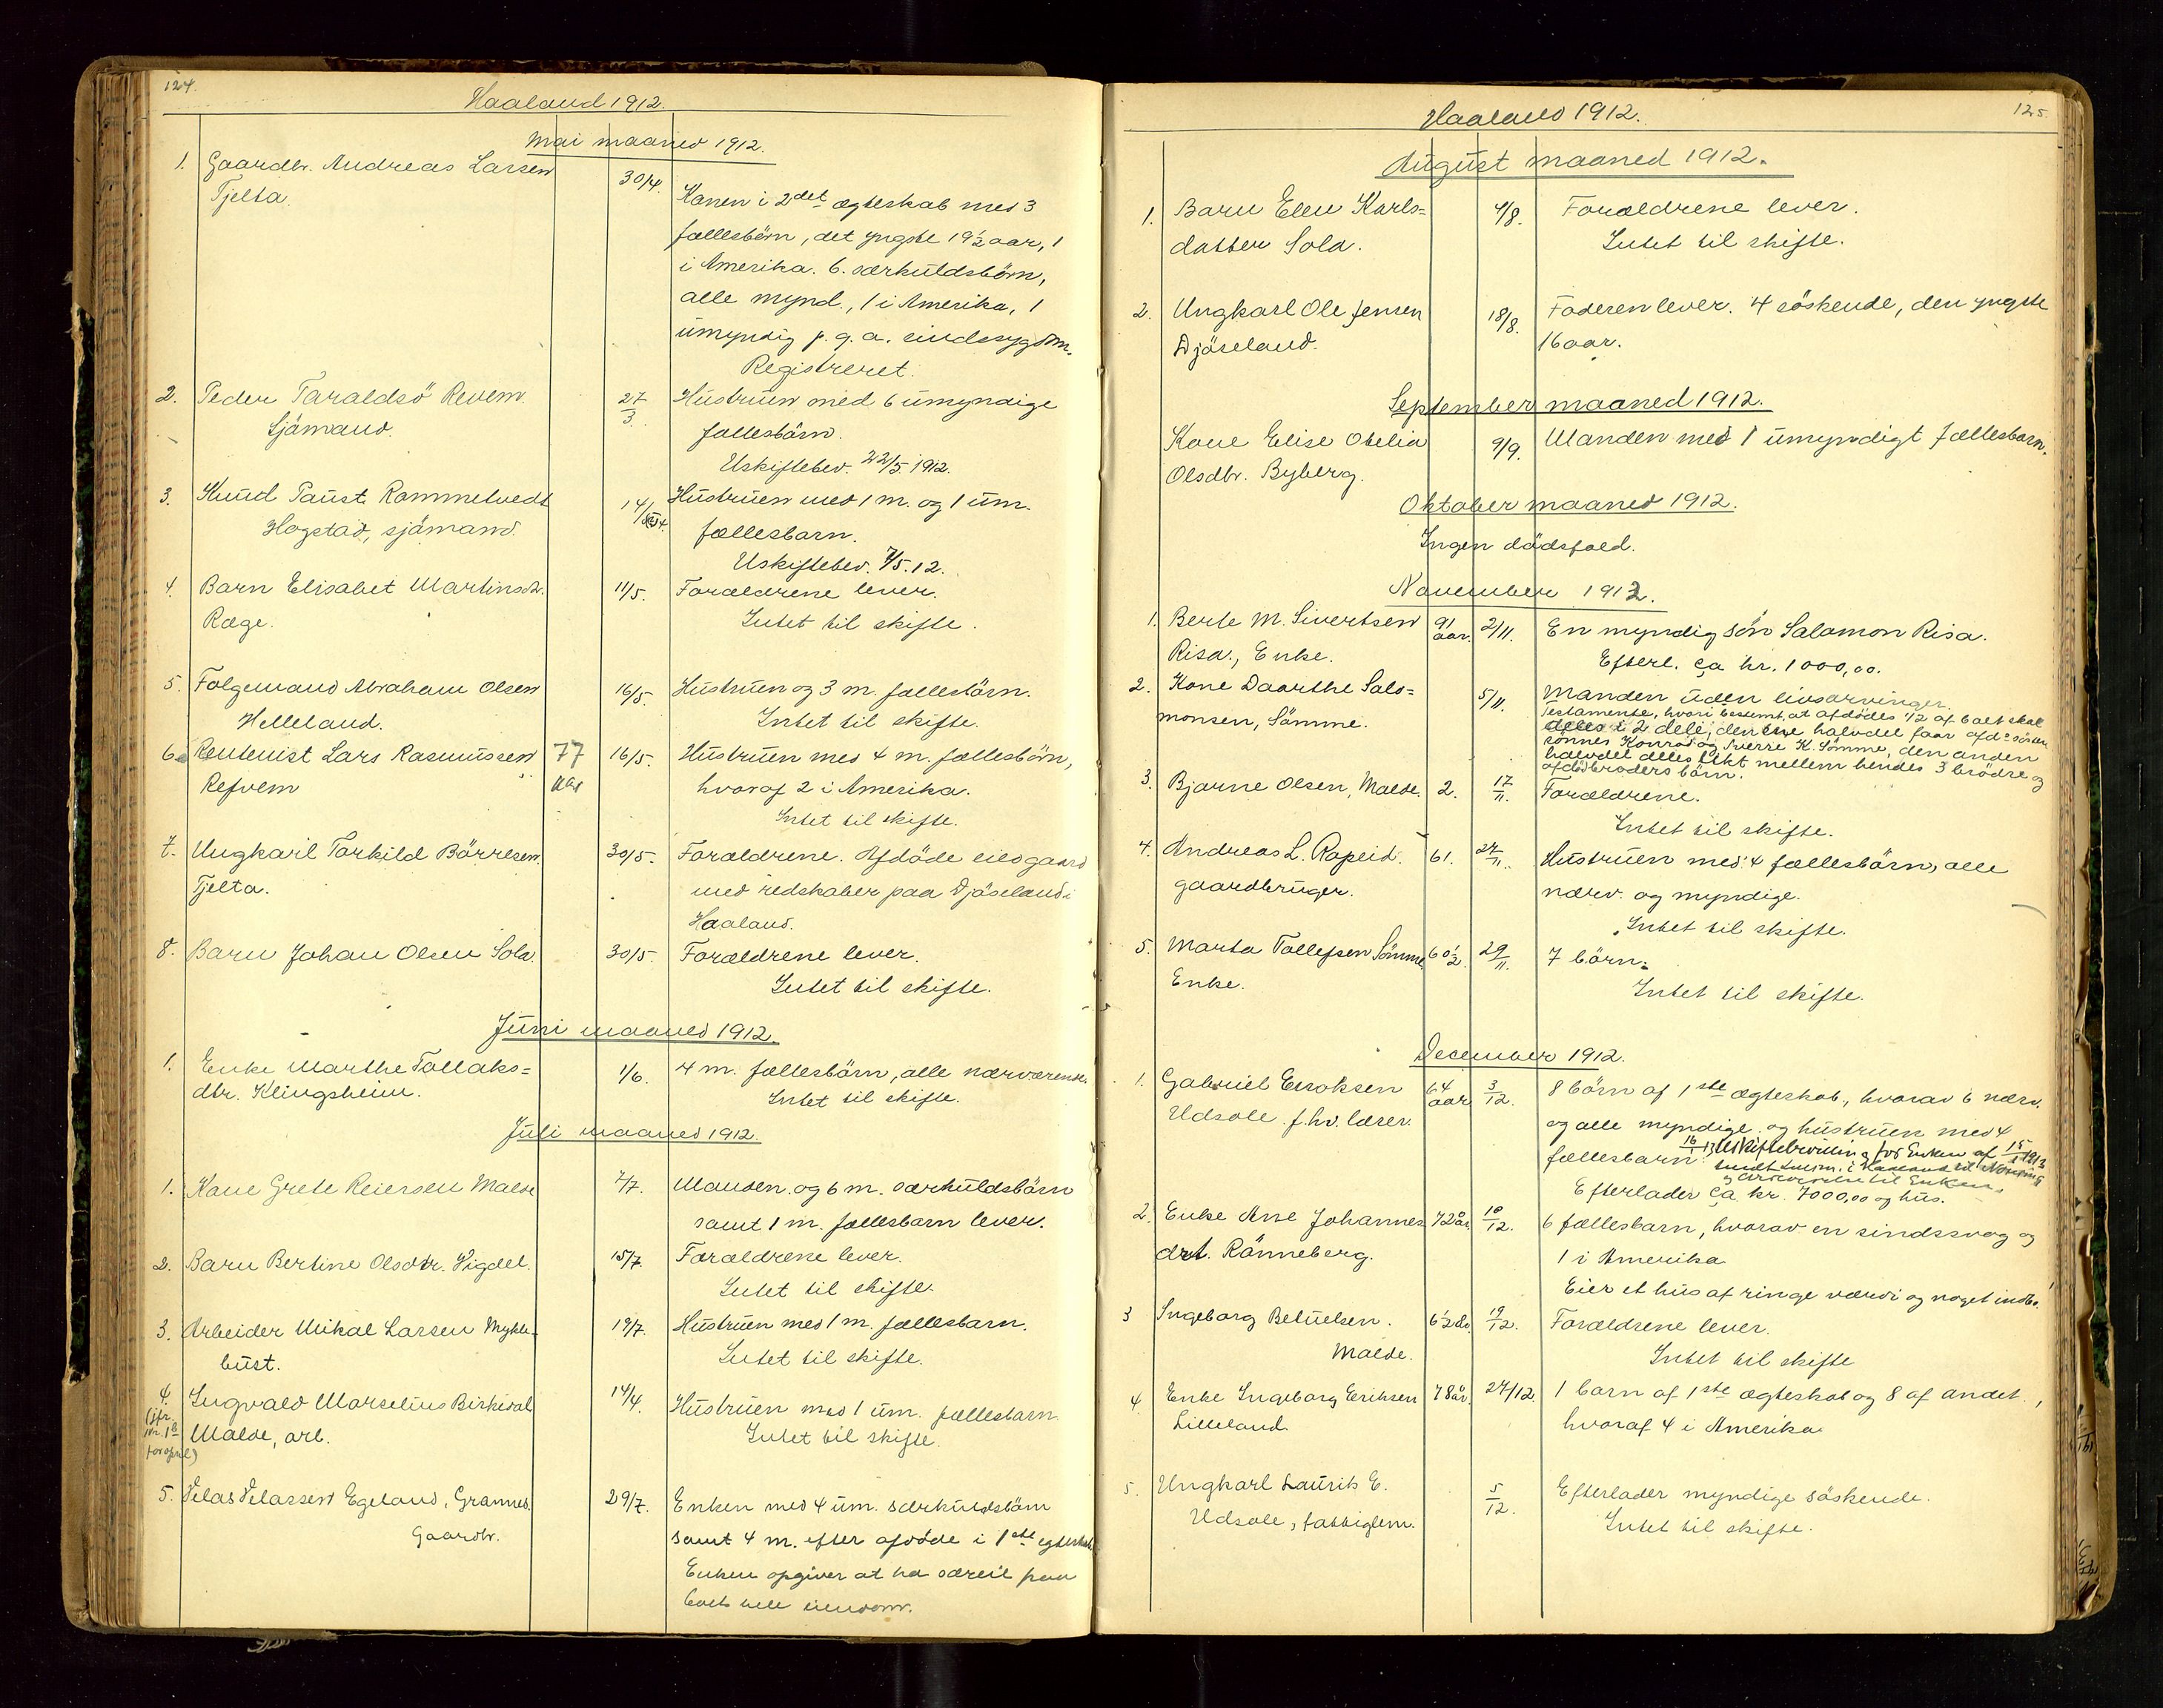 124.
Haaland 1912.
Mai maaned 1912.
1. Gaardbr. Andreas Larsen
Tjelta.
30/4.
Konen i 2det ægteskab med 3
fællesbörn, det yngste 19 1/2 aar, 1
i Amerika. 6. særkuldsbörn,
alle mynd., 1 i Amerika, 1
umyndig p. g. a. sindssygdom.
Registreret.
2. Peder Taraldsö Revem.
Sjömand.
27/3.
Hustruen med 6 umyndige
fællesbörn.
Uskiftebev. 22/5 1912.
3. Knud Paust Rommetvedt
Hogstad, sjömand.
14/
Hustruen med 1 m. og 1 um.
fællesbarn.
Uskiftebev. 7/5.12.
4. Barn Elisabet Martinsdr.
Ræge.
11/5.
Forældrene lever.
Intet til skifte.
5. Folgemand Abraham Olsen
Helleland.
16/5.
Hustruen og 3 m. fællesbörn.
Intet til skifte.
6. Rentenist Lars Rasmussen
Refvem
77
aar
16/5.
Hustruen med 4 m. fællesbörn,
hvoraf 2 i Amerika.
Intet til skifte.
7. Ungkarl Torkild Börresen
Tjelta.
30/5.
Forældrene. Afdöde eied gaard
med redskaber paa Djöseland i
Haaland.
8. Barn Johan Olsen Sola.
30/5.
Forældrene lever.
Intet til skifte.
Juni maaned 1912.
1. Enke Marthe Tollaks=
dtr. Klingsheim.
1/6.
4 m. fællesbörn, alle nærværende.
Intet til skifte.
Juli maaned 1912.
1. Kone Grete Reiersen Malde
7/7.
Manden og 6 m. særkuldsbörn
samt 1 m. fællesbarn lever.
2. Barn Bertine Olsdtr. Vigdel.
15/7.
Forældrene lever.
Intet til skifte.
3. Arbeider Mikal Larsen Mykle-
bust.
19/7.
Hustruen med 1 m. fællesbarn.
Intet til skifte.
4. Ingvald Marselius Birkedal
(jfr.
nr. 1
for april)
Malde, arb.
14/4.
Hustruen med 1 um. fællesbarn
Intet til skifte.
5. Velas Velassen Egeland, Grannes.
Gaardbr.
29/7.
Enken med 4 um. særkuldsbörn
samt 4 m. efter afdöde i 1ste egteskab
Enken opgiver at ha særeie paa
boets hele eiendom.
125
Haaland 1912.
August maaned 1912.
1. Barn Elen Karls=
datter Sola.
4/8.
Forældrene lever.
Intet til skifte.
2. Ungkarl Ole Jensen
Djöseland.
18/8.
Faderen lever. 4 söskende, den yngste
16 aar.
September maaned 1912.
Kone Elise Obelia
Olsdtr. Byberg.
9/9.
Manden med 1 umyndigt fællesbarn.
Oktober maaned 1912.
Ingen dödsfald.
November 1912.
1. Berte M. Sivertsen
Risa, Enke.
91
aar.
2/11.
En myndig sön Salamon Risa.
Efterl. ca kr. 1000,00.
2. Kone Daarthe Salo=
monsen, Sömme.
5/11.
Manden uden livsarvinger.
Testamente, hvori bestemt, at afdödes 1/2 af boet skal
deles i 2 dele; den ene halvdel faar afd.s söster
sönner Konrad og Sverre K. Sömme, den anden
halvdel deles likt mellem hendes 3 brödre og
afdöd broders börn.
3. Bjarne Olsen, Malde.
2.
17/11.
Forældrene.
Intet til skifte.
4. Andreas L. Rapeid.
gaardbruger.
61.
24/11.
Hustruen med 4 fællesbörn, alle
nærv. og myndige.
Intet til skifte.
5. Marta Tollefsen Sömme
Enke.
60 1/2.
29/11.
7 börn.
Intet til skifte.
December 1912.
1. Gabriel Eeroksen
Udsole f.hv. lærer.
64
aar
3/12.
8 börn af 1ste ægteskab, hvorav 6 nærv.
og alle myndige og hustruen med 4
fællesbarn. 16/1 13 Uskiftebevilling for Enken af 15/1 1913
sendt lensm. i Haaland til
Efterlader ca kr. 7000,00 og hus.
2. Enke Ane Johannes
drt. Rönneberg.
72 år
10/12.
6 fællesbarn, hvorav en sindssvag og
1 i Amerika
Eier et hus af ringe værdi og noget indbo.
3 Ingeborg Betuelsen.
Malde.
6 1/2 år.
19/12.
Forældrene lever.
Intet til skifte
4 Enke Ingeborg Eeriksen
Lilleland.
78 år.
27/12.
1 barn af 1ste ægteskab og 8 af andet,
hvoraf 4 i Amerika
5. Ungkarl Laurits E.
Udsole, fattiglem.
5/12.
Efterlader myndige söskende.
Intet til skifte.